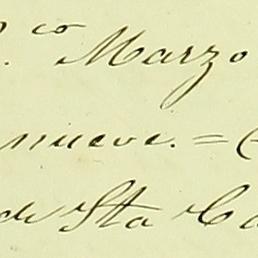 co Marzo
nueve. =
de Sta Ca